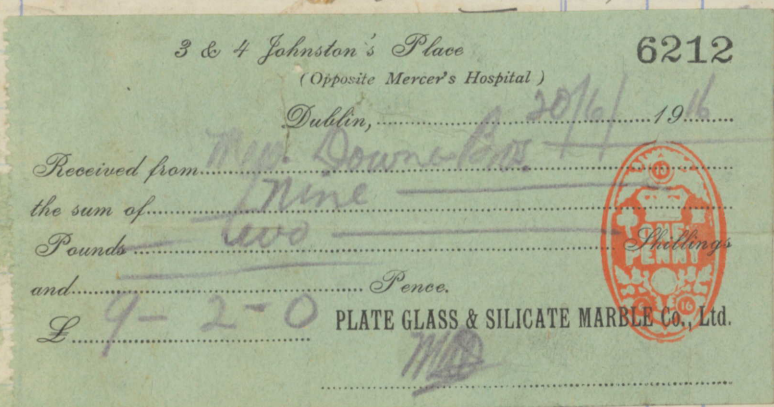 3 & 4 Johnston's Place 6212
(Opposite Mercer's Hospital)
Dublin, 20/6/ 1916
Received from Downes Bros.
the sum of Nine
Pounds two Shillings
and Pence.
£ 9 - 2 - 0 PLATE GLASS & SILICATE MARBLE Co., Ltd.
ONE
PENNY
16